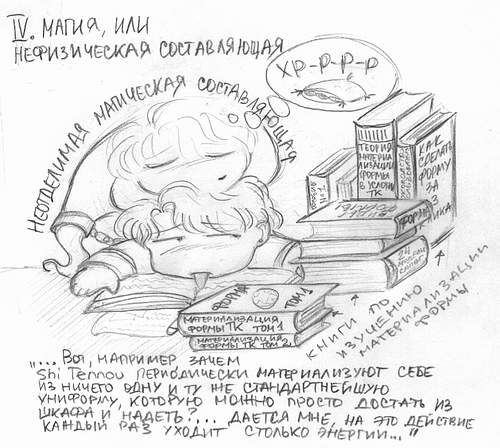 IV. МАГИЯ, ИЛИ
НЕФИЗИЧЕСКАЯ СОСТАВЛЯЮЩАЯ
ХР-Р-Р-Р
НЕОТДЕЛИМАЯ МАГИЧЕСКАЯ СОСТАВЛЯЮЩАЯ
ТЕОРИЯ
МАТЕРИА
ЛИЗАЦИИ
ФОРМЫ
В УСЛОВИ
ТК
КАК
СДЕЛАТЬ
ФОРМУ
ЗА
3
ФОРМА
ФОРМА ТОМ 1
МАТЕРИАЛИЗАЦИЯ
ФОРМЫ ТК ТОМ 1
МАТЕРИАЛИЗАЦИЯ
ФОРМЫ ТК ТОМ 2
КНИГИ ПО
ИЗУЧЕНИЮ
МАТЕРИАЛИЗАЦИИ
ФОРМЫ
"... ВОТ, НАПРИМЕР ЗАЧЕМ
Shi Tennou ПЕРИОДИЧЕСКИ МАТЕРИАЛИЗУЮТ СЕБЕ
ИЗ НИЧЕГО ОДНУ И ТУ ЖЕ СТАНДАРТНЕЙШУЮ
УНИФОРМУ, КОТОРУЮ МОЖНО ПРОСТО ДОСТАТЬ ИЗ
ШКАФА И НАДЕТЬ?... ДАЕТСЯ МНЕ, НА ЭТО ДЕЙСТВИЕ
КАЖДЫЙ РАЗ УХОДИТ СТОЛЬКО ЭНЕРГИИ..."